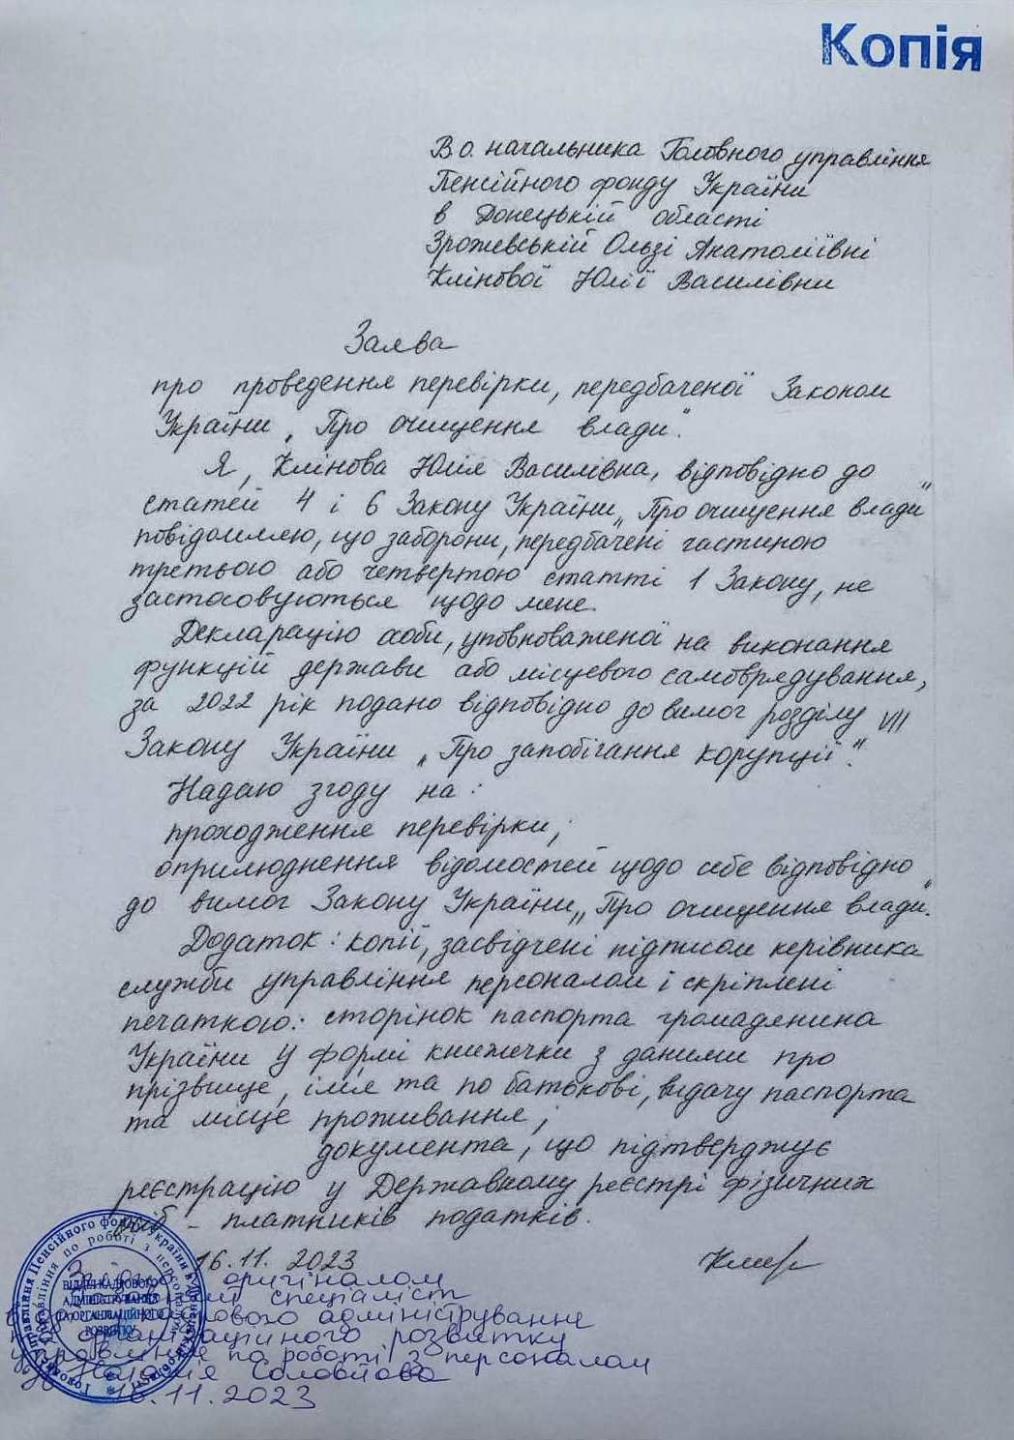 Копія
В о. начальника Головного управління
Пенсійного фонду України
в Донецькій області
Зрожевській Ользі Анатоліївні
Клінової Юлії Василівни
Заява
про проведення перевірки, передбаченої Законом
України „Про очищення влади".
Я, Клінова Юлія Василівна, відповідно до
статей 4 і 6 Закону України „Про очищення влади"
повідомляю, що заборони, передбачені частиною
третьою або четвертою статті 1 Закону, не
застосовуються щодо мене.
Декларацію особи, уповноваженої на виконання
функцій держави або місцевого самоврядування,
за 2022 рік подано відповідно до вимог розділу VII
Закону України „Про запобігання корупції".
Надаю згоду на:
проходження перевірки;
оприлюднення відомостей щодо себе відповідно
до вимог Закону України „Про очищення влади".
Додаток: копії, засвідчені підписом керівника
служби управління персоналом і скріплені
печаткою: сторінок паспорта громадянина
України у формі книжечки з даними про
прізвище, ім'я та по батькові, видачу паспорта
та місце проживання;
документа, що підтверджує
реєстрацію у Державному реєстрі фізичних
осіб - платників податків.
16.11.2023
З оригіналом
спеціаліст
кадрового адміністрування
та організаційного розвитку
управління по роботі з персоналом
Наталія Соловйова
16.11.2023
Головне управління Пенсійного фонду України в Донецькій області
Управління по роботі з персоналом
ВІДДІЛ КАДРОВОГО
АДМІНІСТРУВАННЯ
ТА ОРГАНІЗАЦІЙНОГО
РОЗВИТКУ